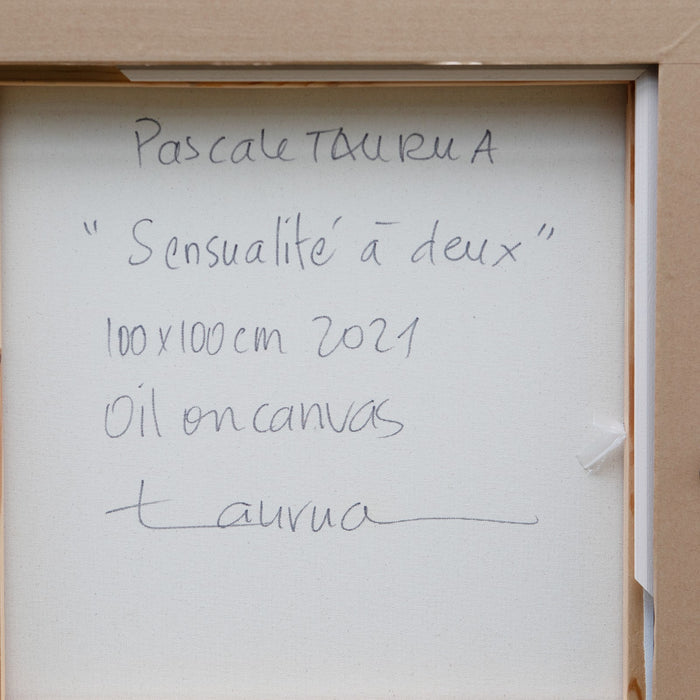 Pascale TAURUA
"Sensualité à deux"
100x100cm 2021
Oil on canvas
taurua